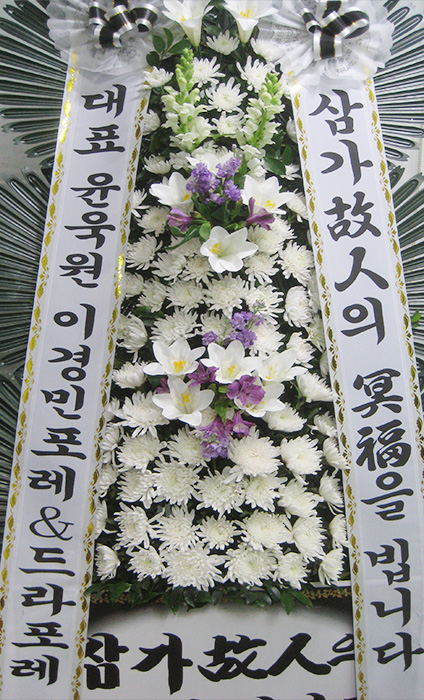 삼가 故人의 冥福을 빕니다
대표 윤욱원 이경민포레&드라포레
삼가故人의